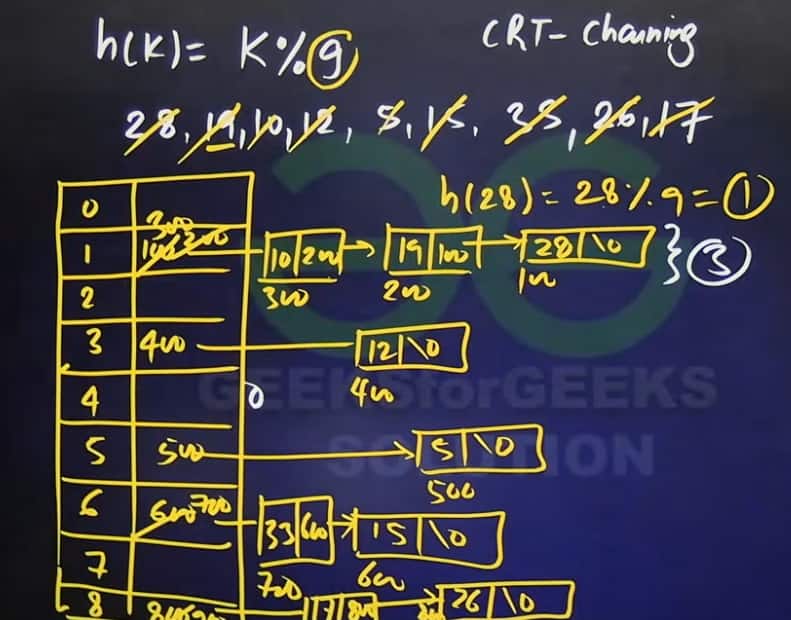 h(K)= K%9
CRT- Chaining
28, 19, 10, 12, 5, 15, 33, 26, 17
h(28) = 28 % 9 = 1
0
300
1 100 200 10 200 19 100 28 \0 3
300 200 100
2
3 400 12 \0
400
4 0
GEEKSforGEEKS
5 500 5 \0
SOLUTION
500
6 600 700 33 600 15 \0
700 600
7
8 17 800 26 \0